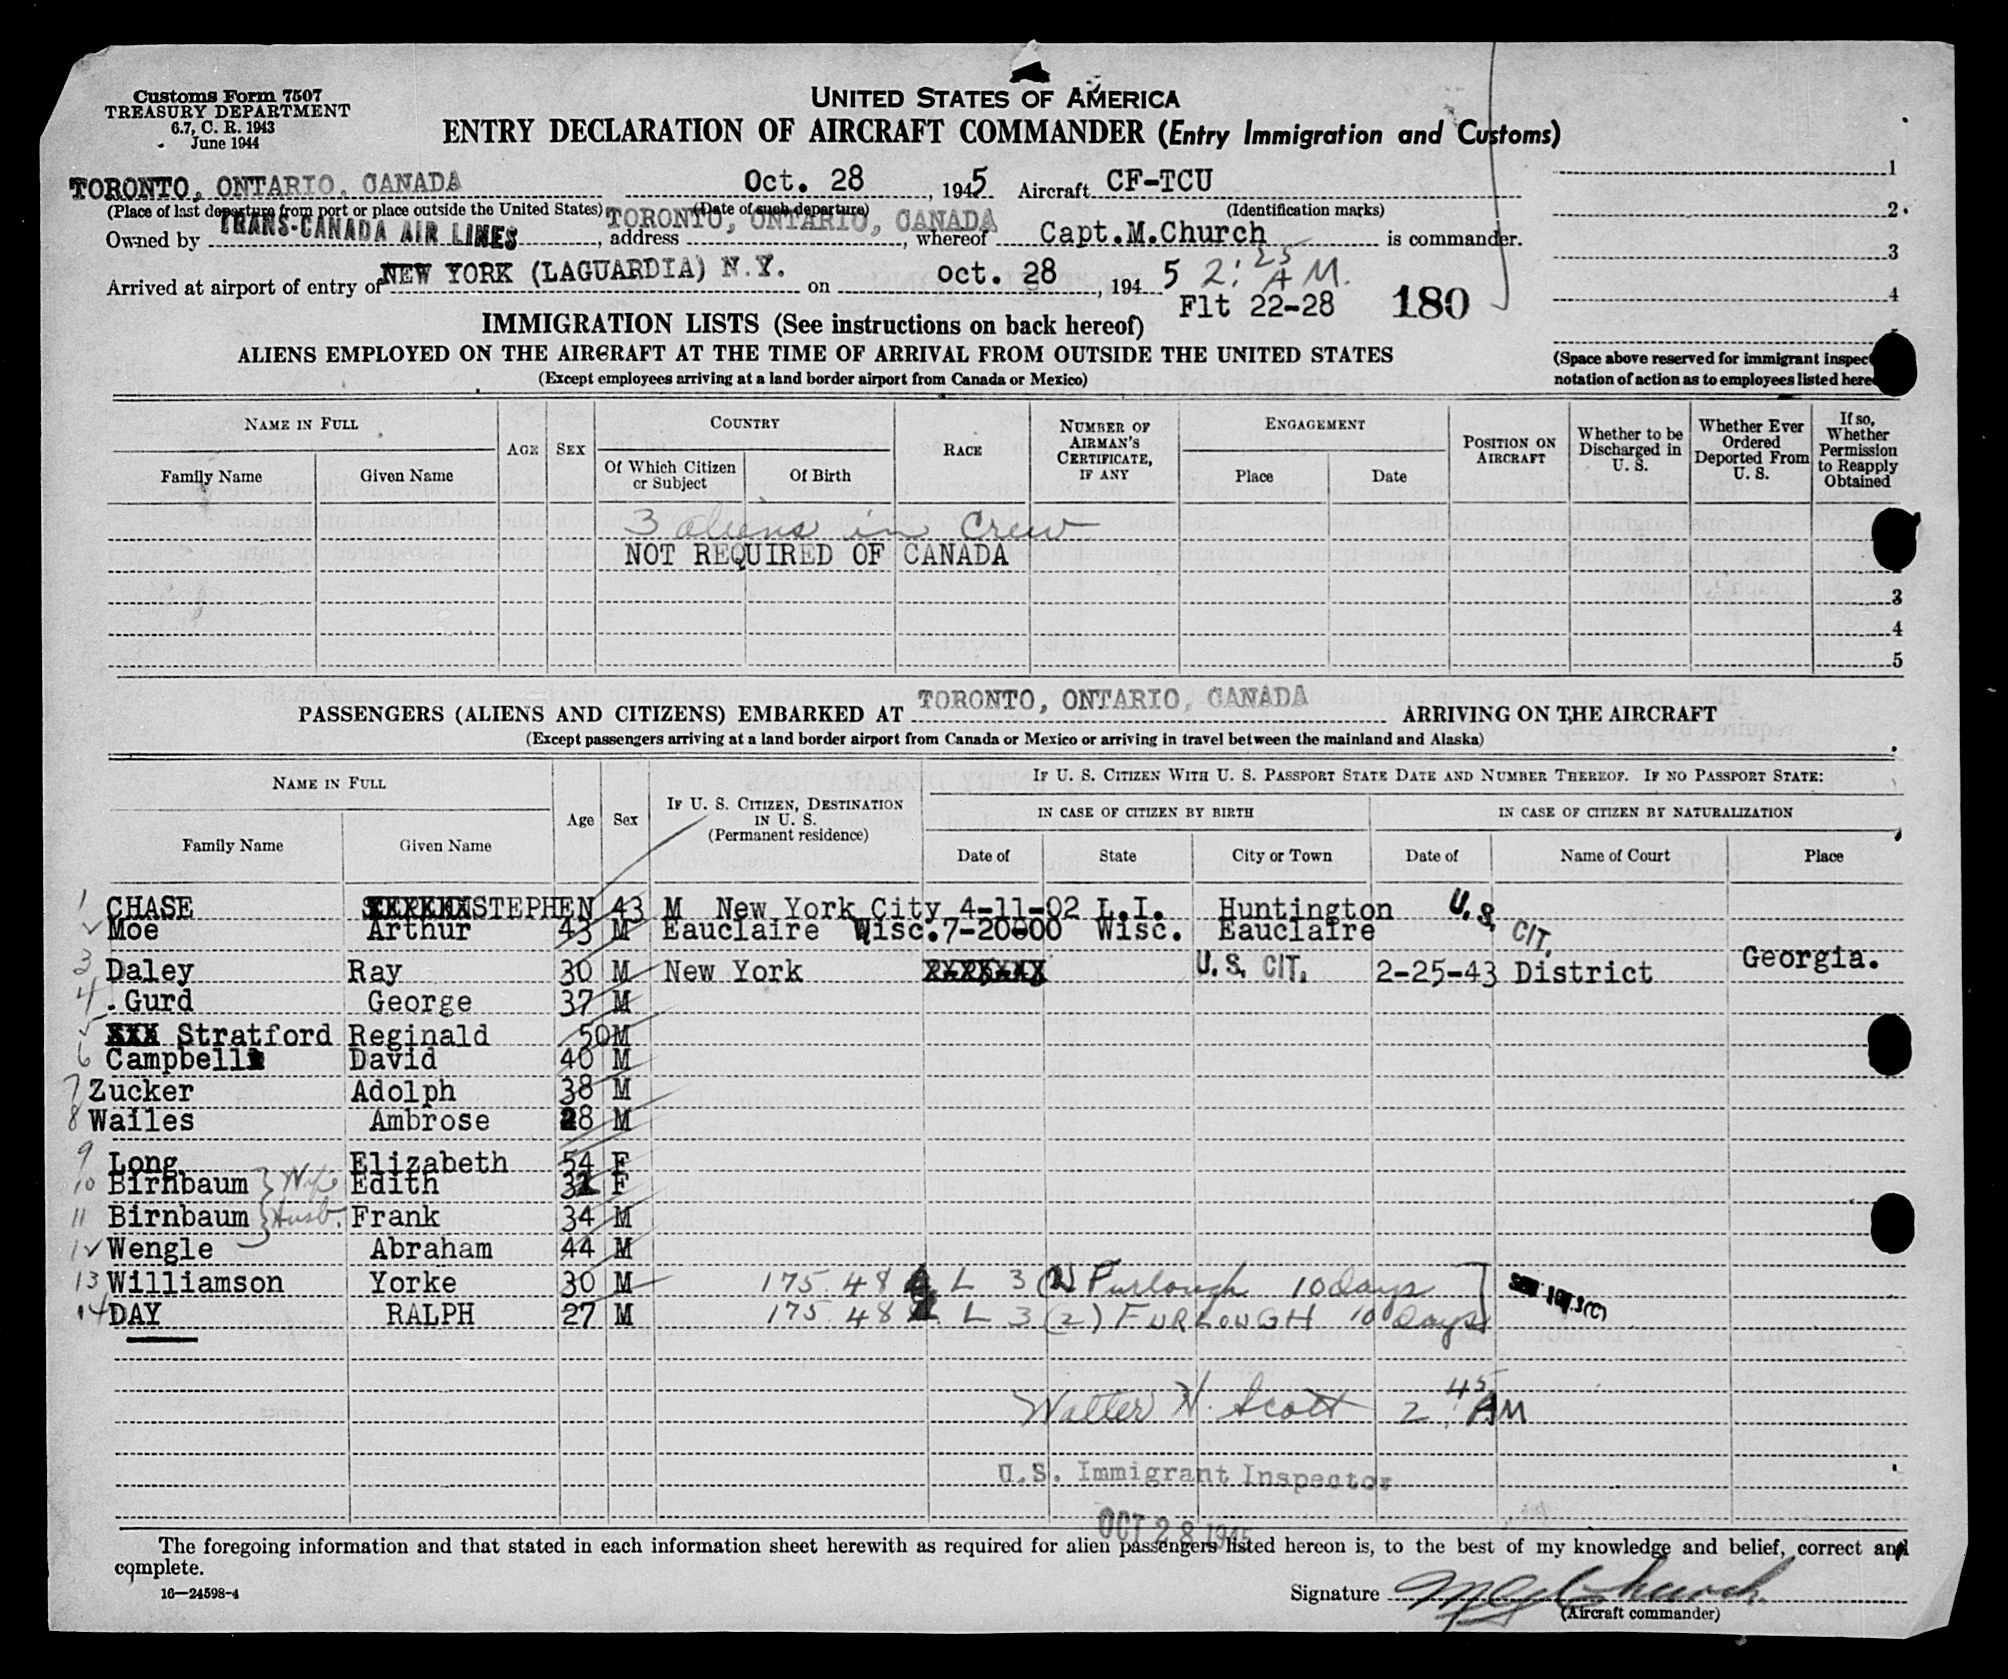 Customs Form 7507
TREASURY DEPARTMENT
6.7, C. R. 1943
June 1944
UNITED STATES OF AMERICA
ENTRY DECLARATION OF AIRCRAFT COMMANDER (Entry Immigration and Customs)
TORONTO, ONTARIO, CANADA Oct. 28, 1945 Aircraft CF-TCU
(Place of last departure from port or place outside the United States) (Date of such departure) (Identification marks)
Owned by TRANS-CANADA AIR LINES, address TORONTO, ONTARIO, CANADA, whereof Capt.M.Church is commander.
Arrived at airport of entry of NEW YORK (LAGUARDIA) N.Y. on oct. 28, 1945 2:25 A M.
Flt 22-28 180
1
2
3
4
(Space above reserved for immigrant
notation of action as to employees listed
IMMIGRATION LISTS (See instructions on back hereof)
ALIENS EMPLOYED ON THE AIRCRAFT AT THE TIME OF ARRIVAL FROM OUTSIDE THE UNITED STATES
(Except employees arriving at a land border airport from Canada or Mexico)
NAME IN FULL AGE SEX COUNTRY RACE NUMBER OF AIRMAN'S CERTIFICATE, IF ANY ENGAGEMENT POSITION ON AIRCRAFT Whether to be Discharged in U. S. Whether Ever Ordered Deported From U. S. If so, Whether Permission to Reapply Obtained
Family Name Given Name Of Which Citizen or Subject Of Birth Place Date
3 aliens in Crew
NOT REQUIRED OF CANADA
3
4
5
PASSENGERS (ALIENS AND CITIZENS) EMBARKED AT TORONTO, ONTARIO, CANADA ARRIVING ON THE AIRCRAFT
(Except passengers arriving at a land border airport from Canada or Mexico or arriving in travel between the mainland and Alaska)
NAME IN FULL Age Sex IF U. S. CITIZEN, DESTINATION IN U. S. (Permanent residence) IF U. S. CITIZEN WITH U. S. PASSPORT STATE DATE AND NUMBER THEREOF. IF NO PASSPORT STATE:
IN CASE OF CITIZEN BY BIRTH IN CASE OF CITIZEN BY NATURALIZATION
Family Name Given Name Date of State City or Town Date of Name of Court Place
1 CHASE STEPHEN 43 M New York City 4-11-02 L.I. Huntington U.S. CIT.
Moe Arthur 43 M Eauclaire Wisc. 7-20-00 Wisc. Eauclaire
3 Daley Ray 30 M New York U.S. CIT. 2-25-43 District Georgia.
4 Gurd George 37 M
Stratford Reginald 50 M
6 Campbell David 40 M
7 Zucker Adolph 38 M
8 Wailes Ambrose 28 M
9 Long Elizabeth 54 F
10 Birnbaum Wife Edith F
11 Birnbaum Husb. Frank 34 M
12 Wengle Abraham 44 M
13 Williamson Yorke 30 M 175.48 L 3 (2) Furlough 10 days
14 DAY RALPH 27 M 175.48 L 3 (2) FURLOUGH 10 days
Walter H. Scott 2:45 AM
U.S. Immigrant Inspector
OCT 28 1945
The foregoing information and that stated in each information sheet herewith as required for alien passengers listed hereon is, to the best of my knowledge and belief, correct and
complete.
16—24598-4
Signature M Church
(Aircraft commander)